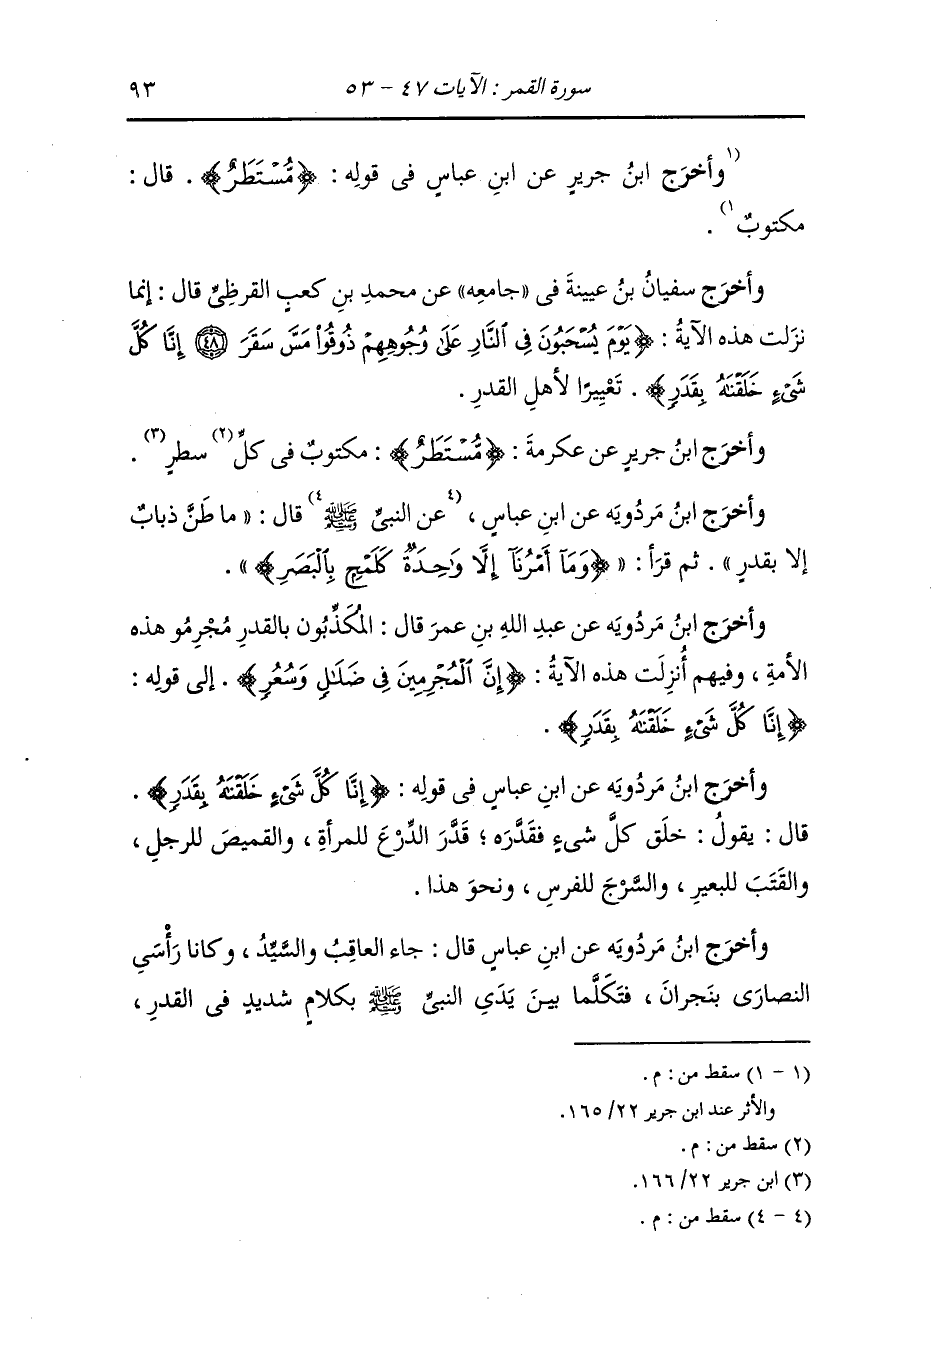 سورة القمر : الآيات ٤٧ - ٥٣ ٩٣
(١وأخرَج ابنُ جريرٍ عن ابنِ عباسٍ فى قولِه : ﴿مُّسْتَطَرٌ﴾ . قال :
مكتوبٌ١) .
وأخرَج سفيانُ بنُ عيينةَ فى «جامعِه» عن محمدِ بنِ كعبٍ القرظِىِّ قال : إنما
نزَلت هذه الآيةُ : ﴿يَوْمَ يُسْحَبُونَ فِى ٱلنَّارِ عَلَىٰ وُجُوهِهِمْ ذُوقُوا۟ مَسَّ سَقَرَ ﴿٤٨﴾ إِنَّا كُلَّ
شَىْءٍ خَلَقْنَٰهُ بِقَدَرٍ﴾ . تَعْيِيرًا لأهلِ القدرِ .
وأخرَج ابنُ جريرٍ عن عكرمةَ : ﴿مُّسْتَطَرٌ﴾ : مكتوبٌ فى كلِّ(٢) سطرٍ(٣) .
وأخرَج ابنُ مَردُويَه عن ابنِ عباسٍ ، (٤عن النبىِّ ﷺ٤) قال : « ما طَنَّ ذبابٌ
إلا بقدرٍ » . ثم قرَأ : « ﴿وَمَآ أَمْرُنَآ إِلَّا وَٰحِدَةٌ كَلَمْحٍۭ بِٱلْبَصَرِ﴾ » .
وأخرَج ابنُ مَردُويَه عن عبدِ اللهِ بنِ عمرَ قال : المُكَذِّبُون بالقدرِ مُجْرِمُو هذه
الأمةِ ، وفيهم أُنزِلَت هذه الآيةُ : ﴿إِنَّ ٱلْمُجْرِمِينَ فِى ضَلَٰلٍ وَسُعُرٍ﴾ . إلى قولِه :
﴿إِنَّا كُلَّ شَىْءٍ خَلَقْنَٰهُ بِقَدَرٍ﴾ .
وأخرَج ابنُ مَردُويَه عن ابنِ عباسٍ فى قولِه : ﴿إِنَّا كُلَّ شَىْءٍ خَلَقْنَٰهُ بِقَدَرٍ﴾ .
قال : يقولُ : خلَق كلَّ شىءٍ فقَدَّره ؛ قَدَّرَ الدِّرْعَ للمرأةِ ، والقميصَ للرجلِ ،
والقَتَبَ للبعيرِ ، والسَّرْجَ للفرسِ ، ونحوَ هذا .
وأخرَج ابنُ مَردُويَه عن ابنِ عباسٍ قال : جاء العاقِبُ والسَّيِّدُ ، وكانا رَأْسَىِ
النصارَى بنَجرانَ ، فتَكَلَّما بينَ يَدَىِ النبىِّ ﷺ بكلامٍ شديدٍ فى القدرِ ،
(١ - ١) سقط من : م .
والأثر عند ابن جرير ٢٢/ ١٦٥.
(٢) سقط من : م .
(٣) ابن جرير ٢٢/ ١٦٦.
(٤ - ٤) سقط من : م .